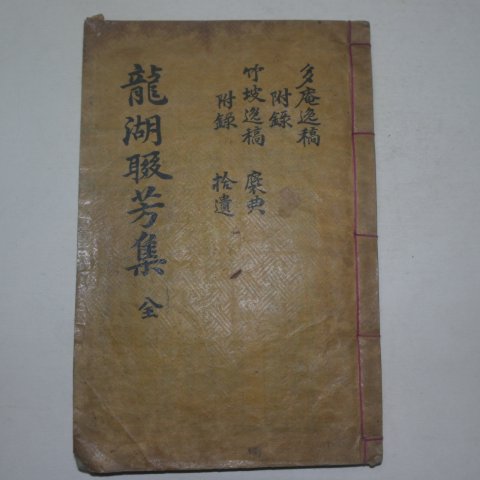 多庵逸稿
附錄
竹坡逸稿 褒典
附錄 拾遺
龍湖聯芳集 全